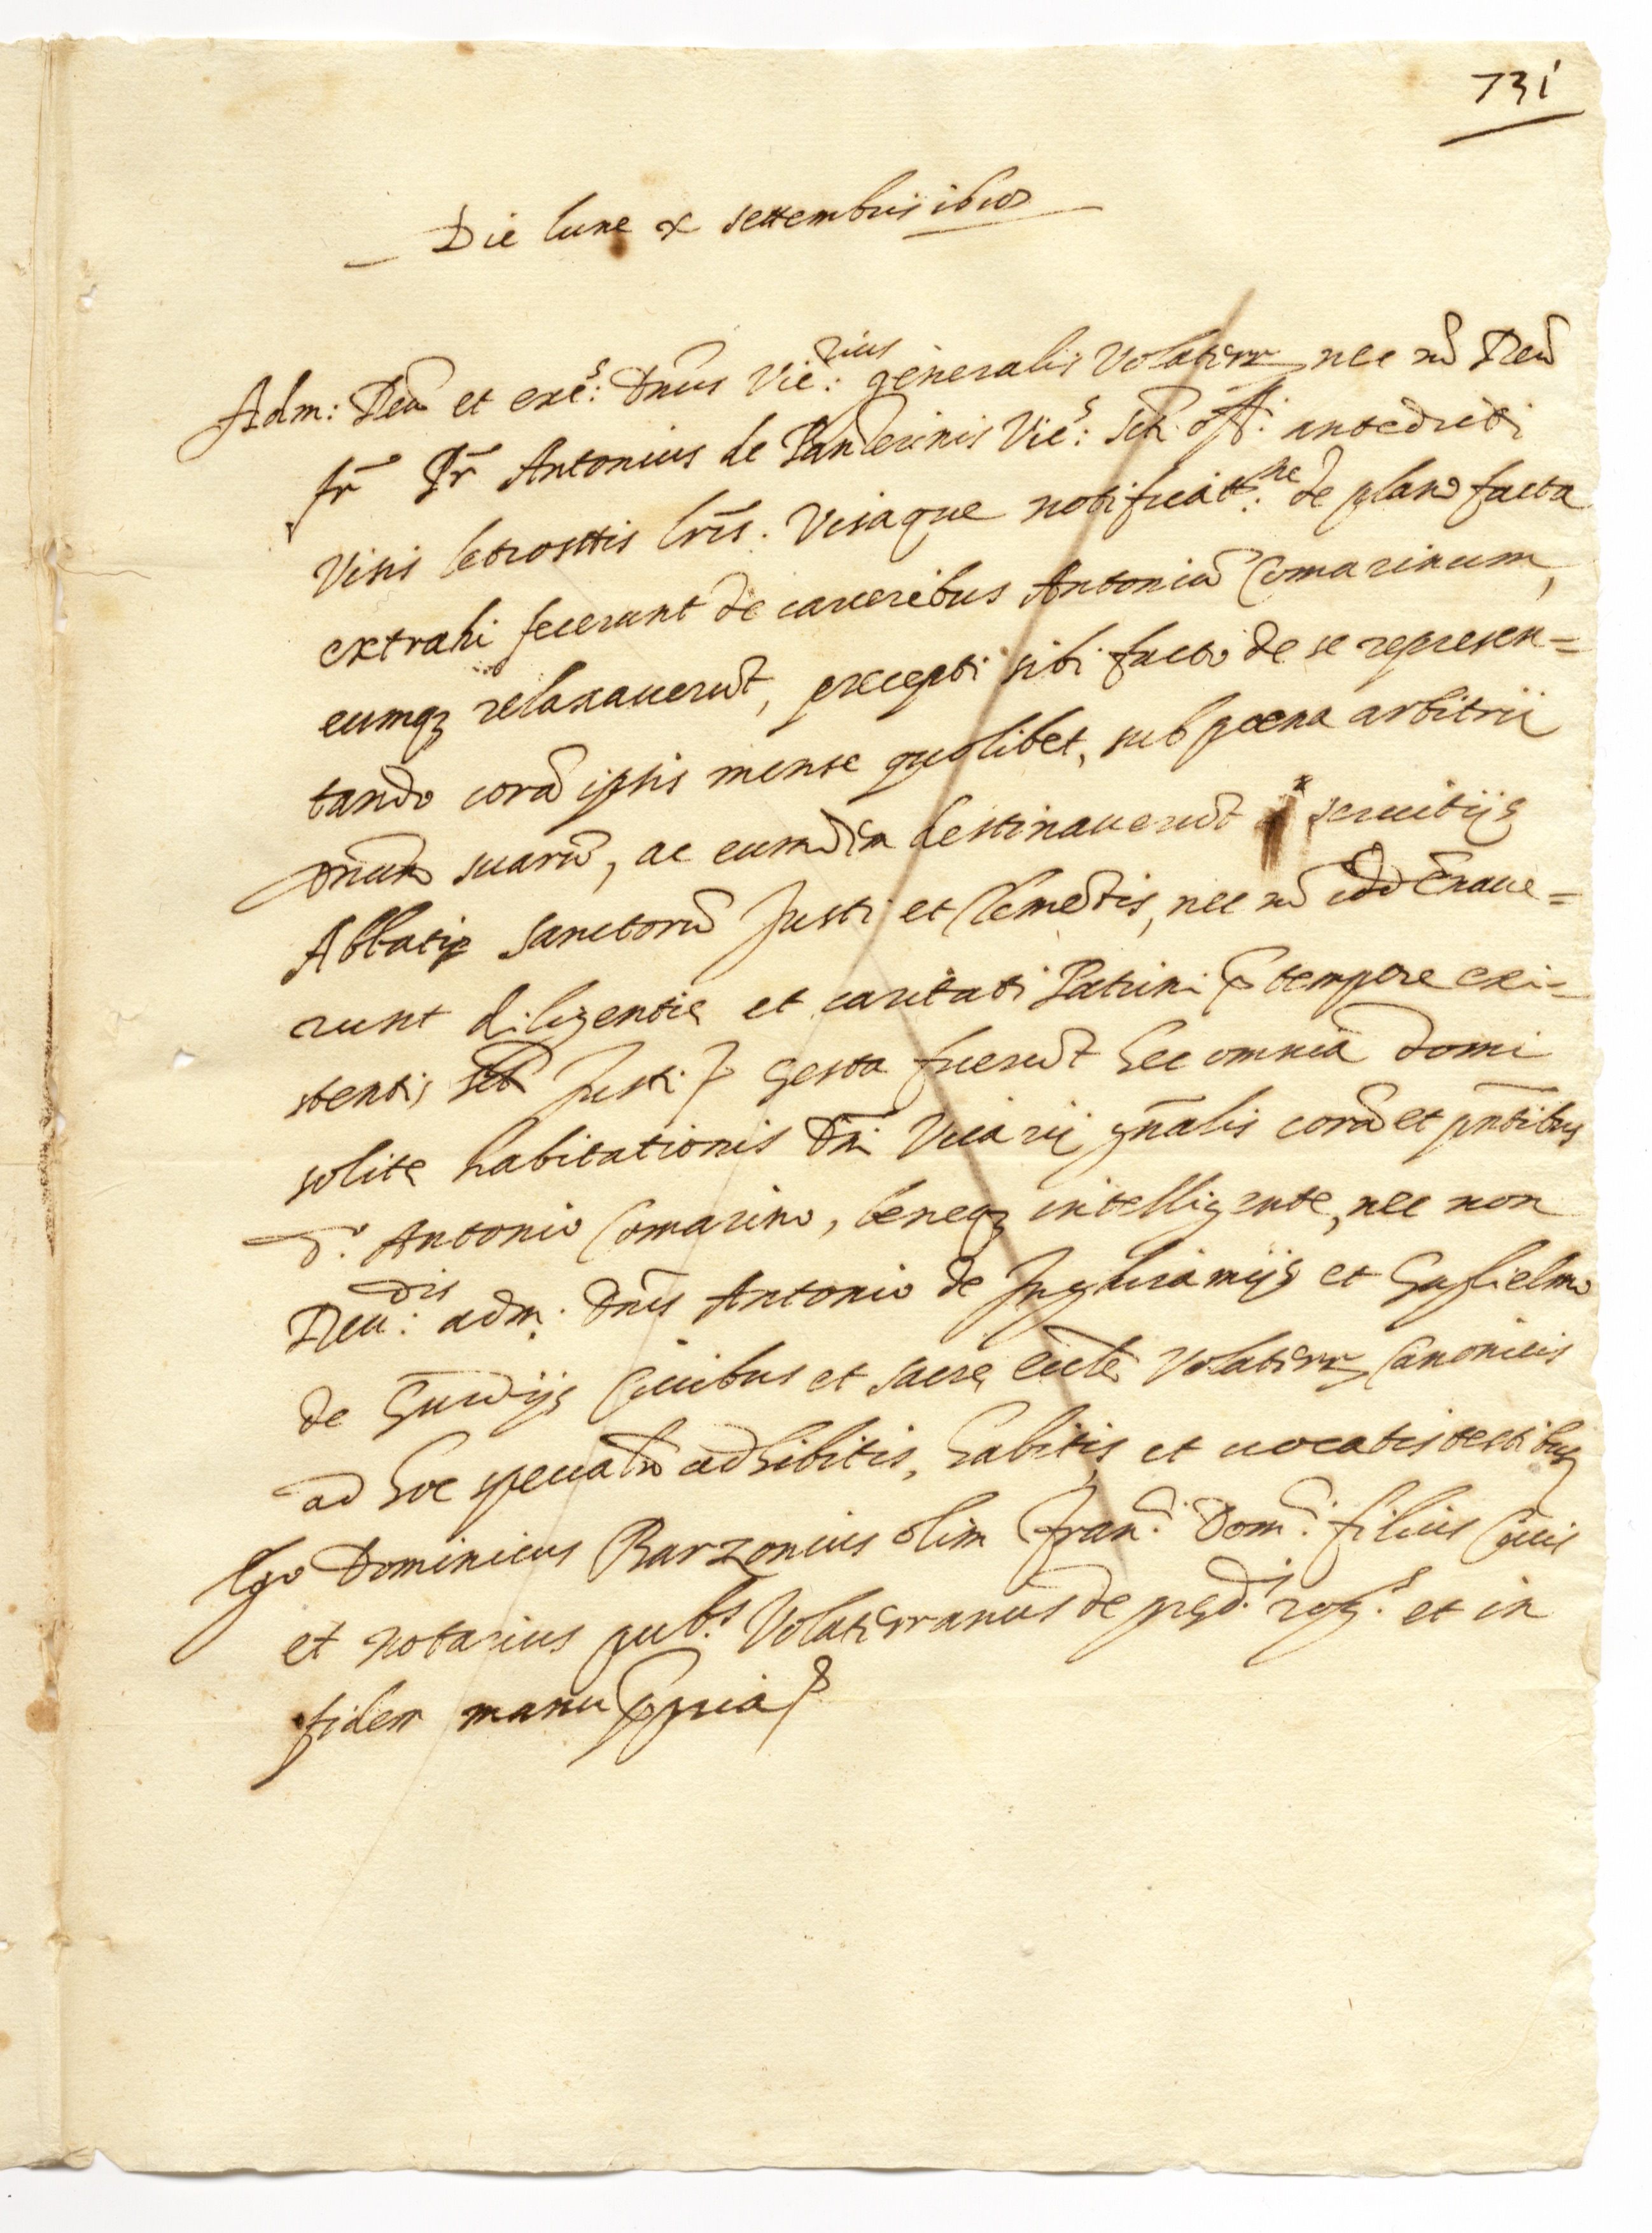 731
Die lune x settembris 1610
Adm: Reū et exc:s Dnus Vic:rius generalis Volaterr nec nō Reū
fr Pr Antonius de Panderinis Vic:s Sti offi: antedicti
Visis retrosttis lris. Visaque notificatt:ne de plano facta
extrahi fecerunt de carceribus Antoniū Comarinum,
eumq relaxauerūt, precepti sibi facto de se represen=
tando corā ipsis mense quolibet, sub poena arbitrii
Dnum suarū, ac eumdem destinauerūt seruitijs
Abbatię Sanctorū Justi et Clemētis, nec nō
runt diligentię et caritati Patrini p tempore exi=
stentis Justi. Gesta fuerūt hec omnia domi
solitę habitationis Dni Vicarij gnalis corā et pntibus
d.o Antonio Comarino, beneq intelligente, nec non
Reu:dis adm: Dnis Antonio de Inghiramijs et Guglielmo
de Guidijs Ciuibus et sacrę eccle Volaterr Canonicis
ad hoc specialr adhibitis, habitis, et uocatis testibus
Ego Dominicus Barzonius olim Fran:ci Dom:ci filius Ciuis
et notarius pub:s Volaterranus de pred:s rog:s et in
fidem manu ppria